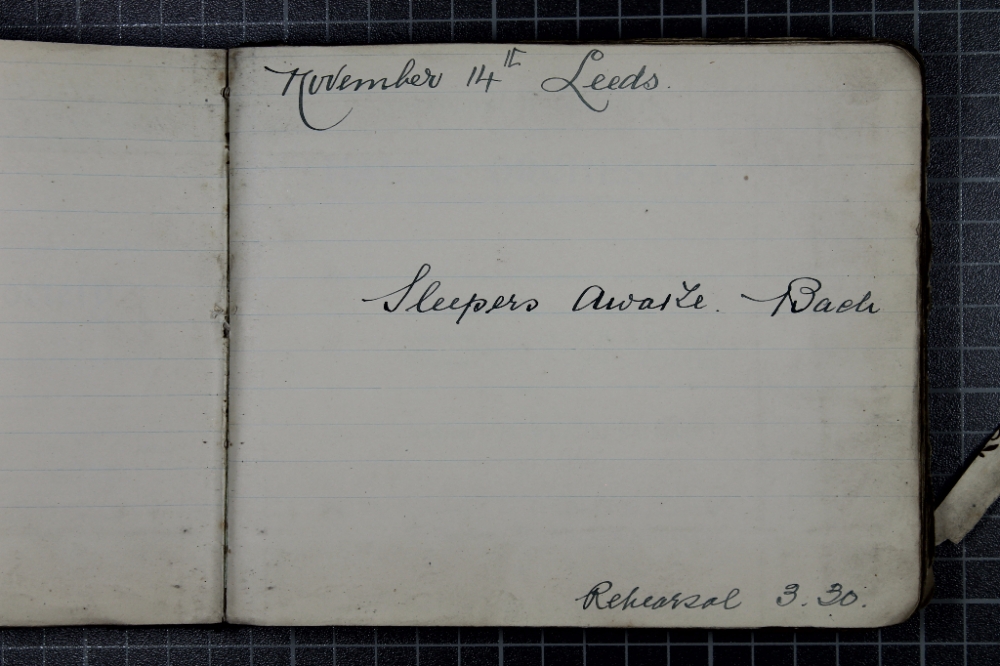 November 14th Leeds.
Sleepers Awake. Bach
Rehearsal 3.30.